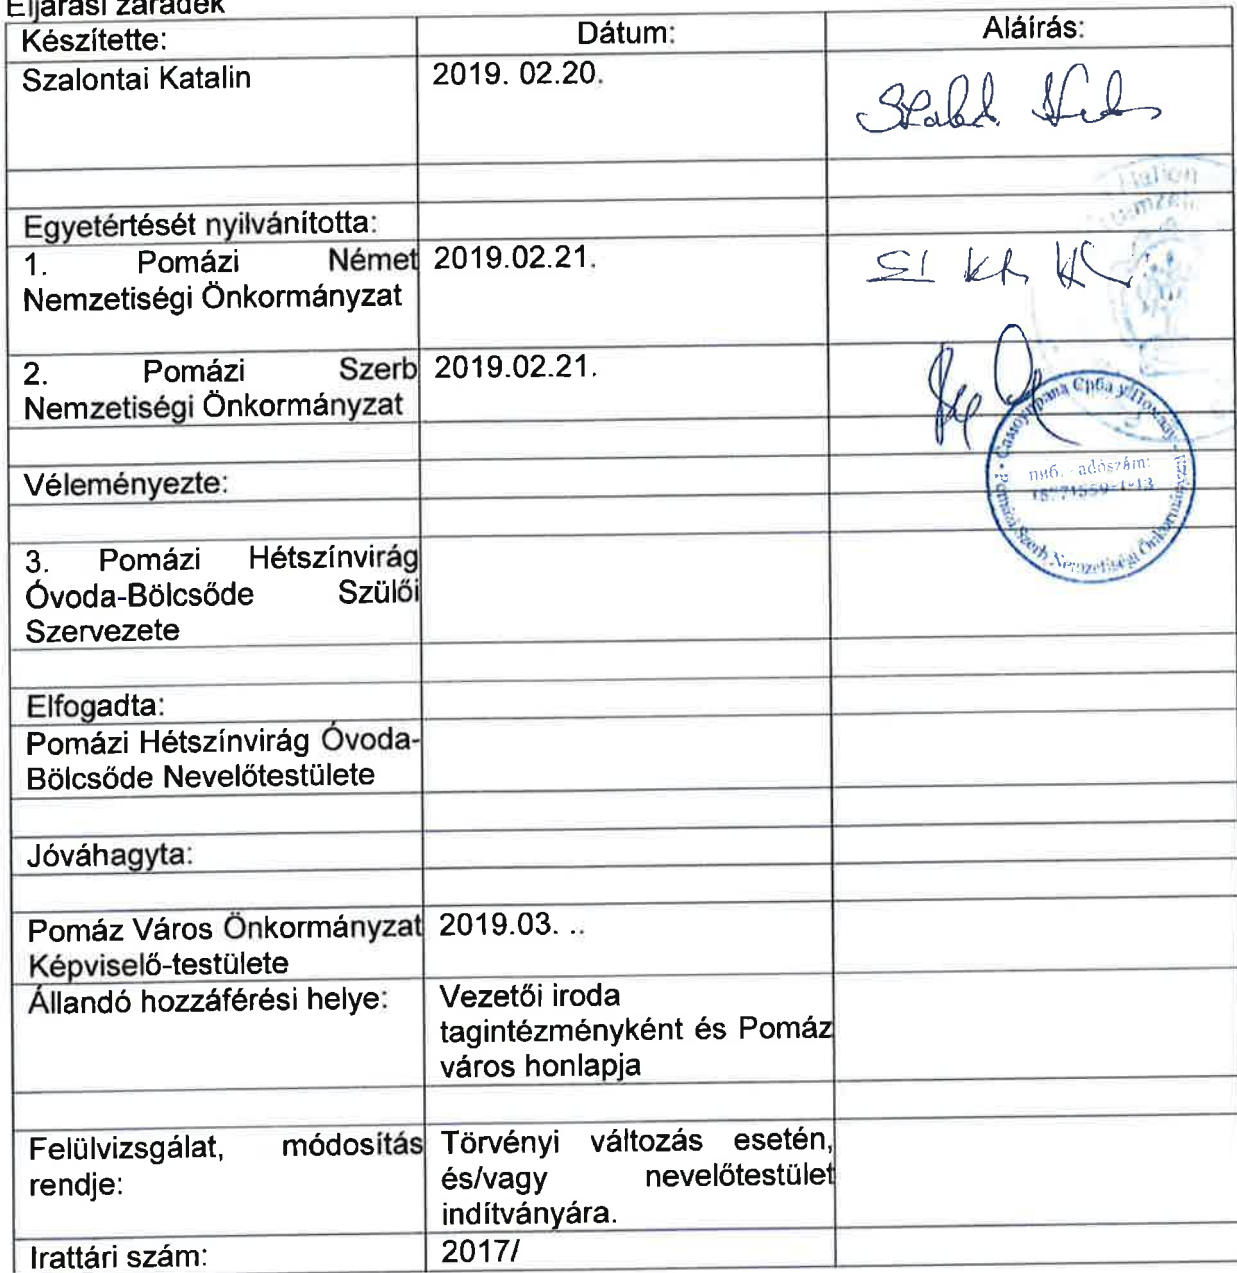 Eljárási záradék
Készítette: Dátum: Aláírás:
Szalontai Katalin 2019. 02.20.
Egyetértését nyilvánította:
1. Pomázi Német 2019.02.21.
Nemzetiségi Önkormányzat
2. Pomázi Szerb 2019.02.21.
Nemzetiségi Önkormányzat
Самоуправа Срба у Помазу
пиб. - adószám:
Pomázi Szerb Nemzetiségi Önkormányzat
Véleményezte:
3. Pomázi Hétszínvirág
Óvoda-Bölcsőde Szülői
Szervezete
Elfogadta:
Pomázi Hétszínvirág Óvoda-
Bölcsőde Nevelőtestülete
Jóváhagyta:
Pomáz Város Önkormányzat 2019.03. ..
Képviselő-testülete
Állandó hozzáférési helye: Vezetői iroda
tagintézményként és Pomáz
város honlapja
Felülvizsgálat, módosítás Törvényi változás esetén,
rendje: és/vagy nevelőtestület
indítványára.
Irattári szám: 2017/